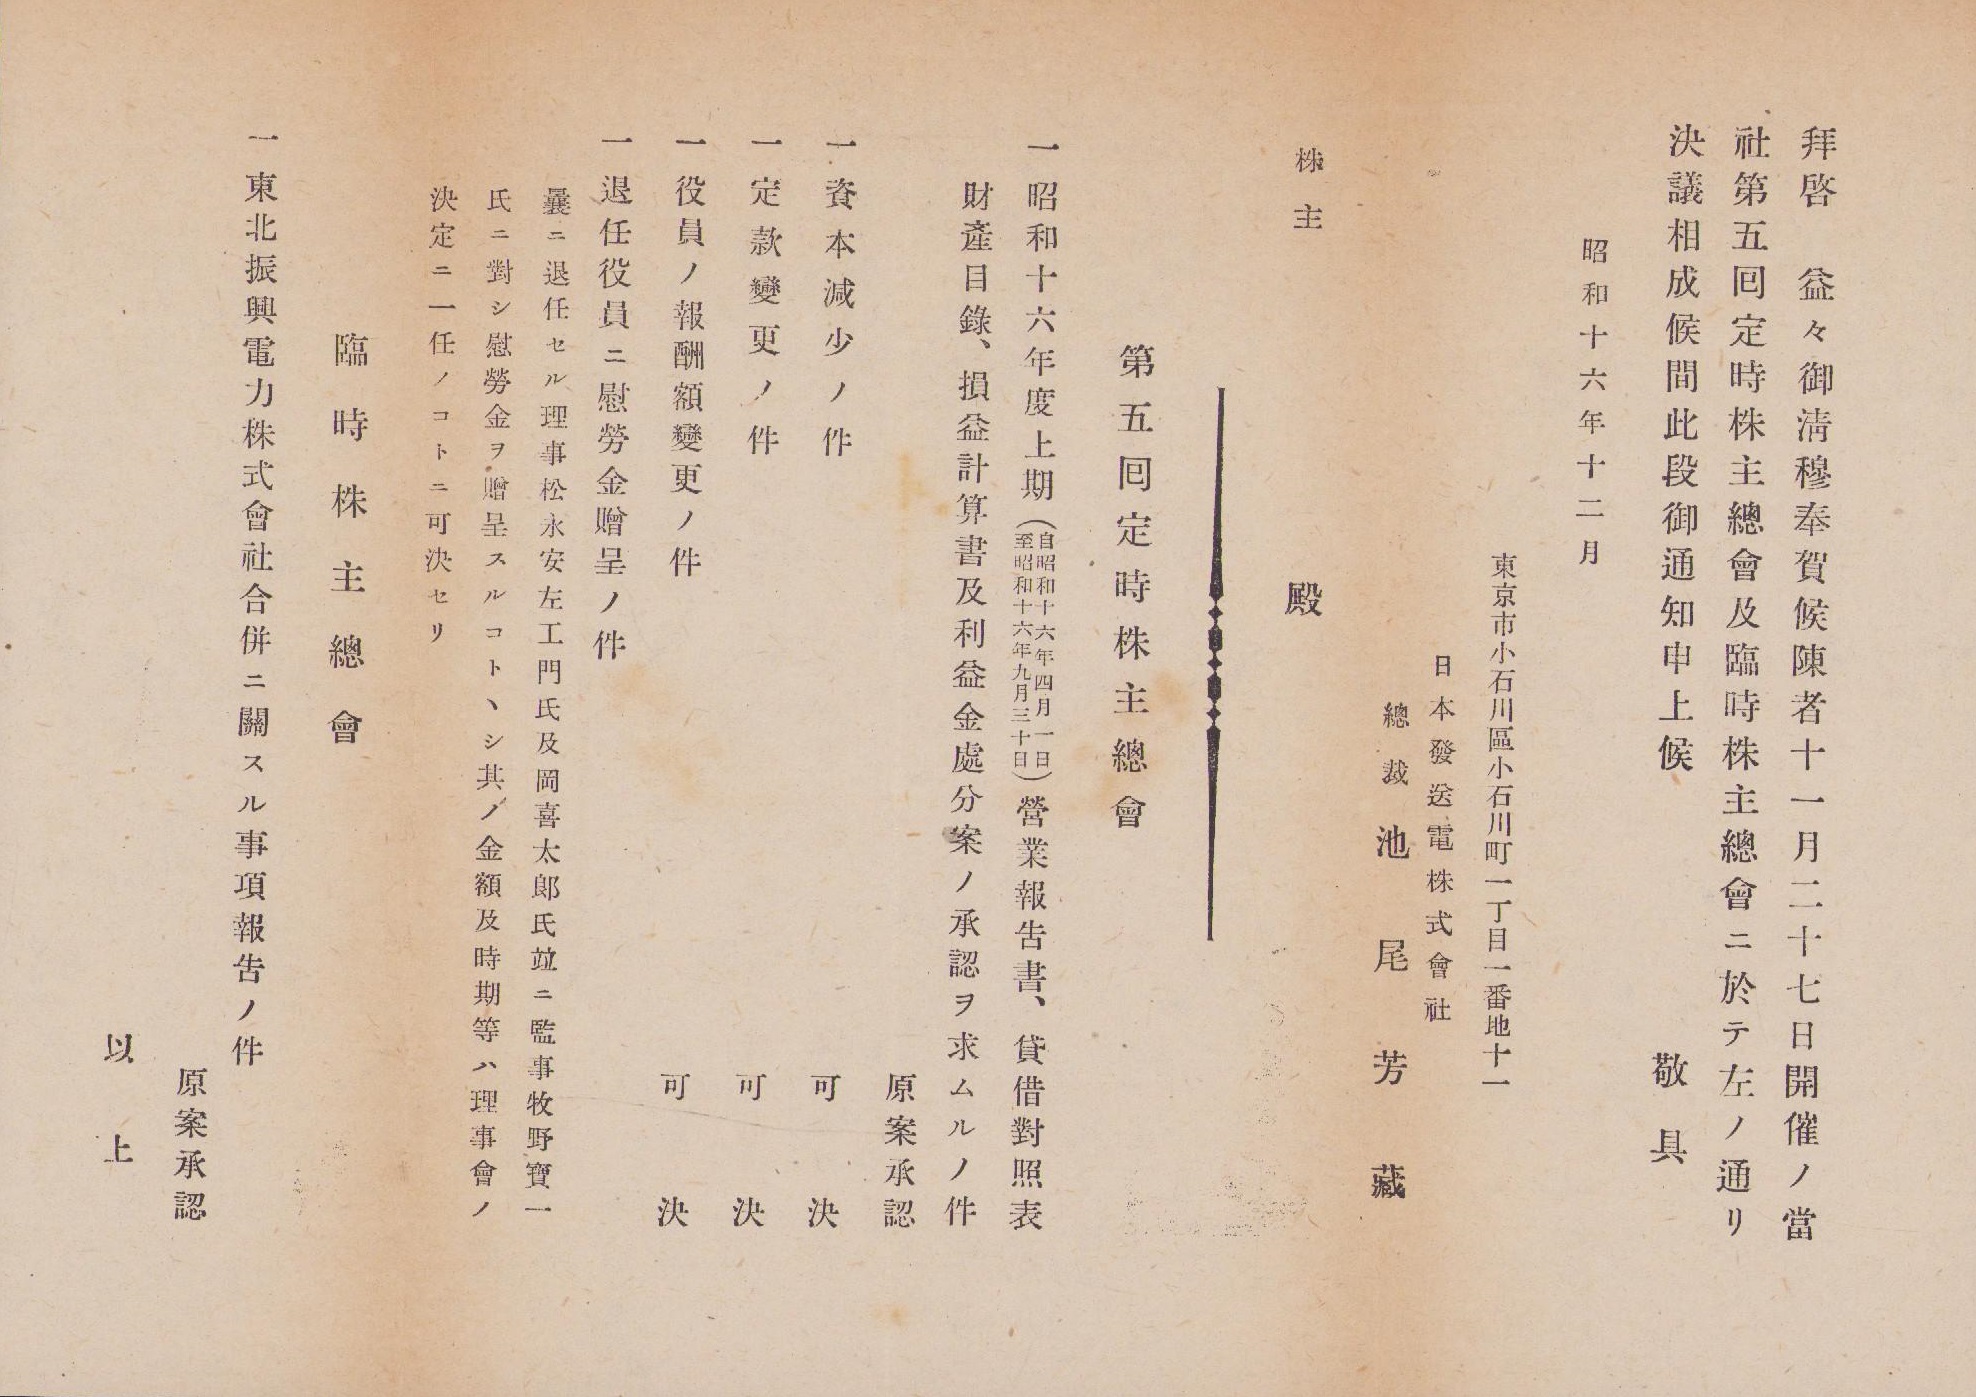 拜啓　益々御淸穆奉賀候陳者十一月二十七日開催ノ當
社第五回定時株主總會及臨時株主總會ニ於テ左ノ通リ
決議相成候間此段御通知申上候　敬具
昭和十六年十二月
東京市小石川區小石川町一丁目一番地十一
日本發送電株式會社
總裁　池尾芳藏
株主　殿
第五回定時株主總會
一昭和十六年度上期（自昭和十六年四月一日至昭和十六年九月三十日）營業報告書、貸借對照表
財產目錄、損益計算書及利益金處分案ノ承認ヲ求ムルノ件
原案承認
一資本減少ノ件　可決
一定款變更ノ件　可決
一役員ノ報酬額變更ノ件　可決
一退任役員ニ慰勞金贈呈ノ件
曩ニ退任セル理事松永安左工門氏及岡喜太郞氏竝ニ監事牧野寶一
氏ニ對シ慰勞金ヲ贈呈スルコトヽシ其ノ金額及時期等ハ理事會ノ
決定ニ一任ノコトニ可決セリ
臨時株主總會
一東北振興電力株式會社合併ニ關スル事項報告ノ件
原案承認
以上